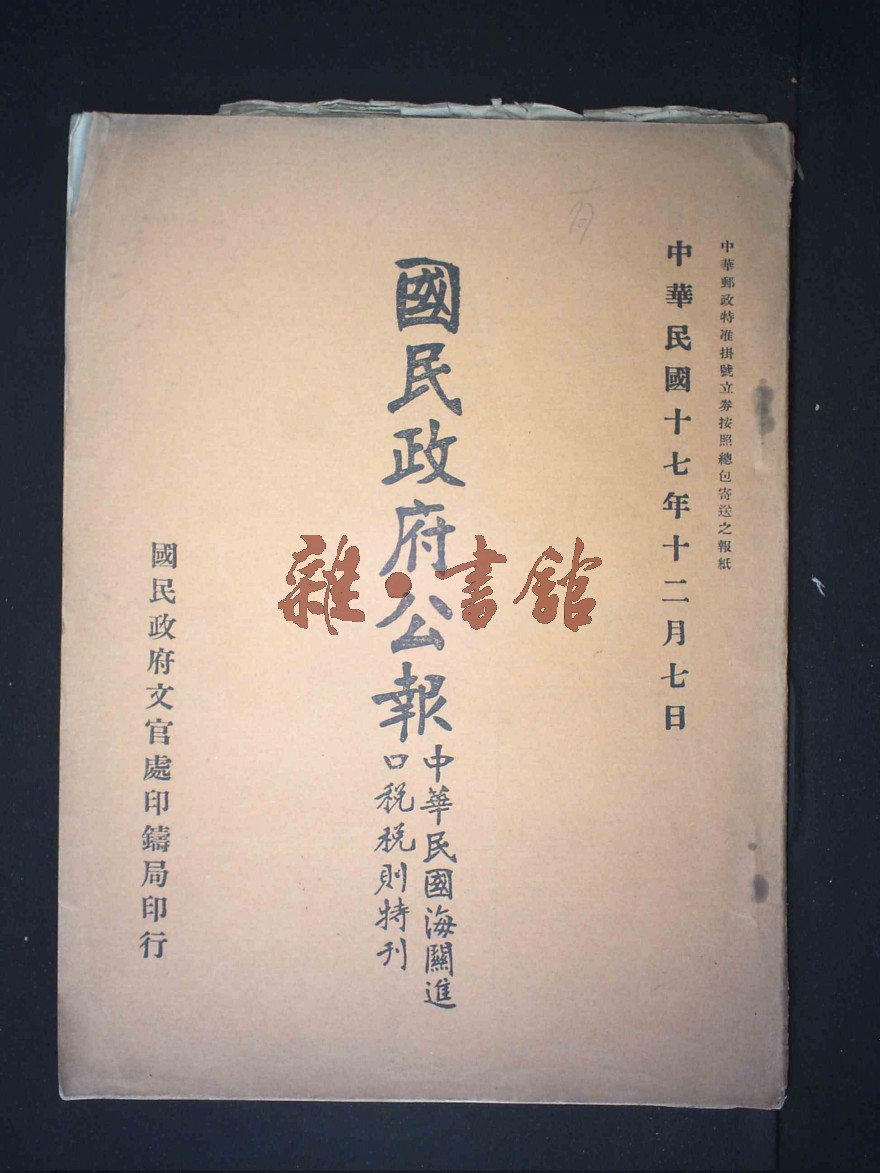 中華郵政特准掛號立券按照總包寄送之報紙
中華民國十七年十二月七日
國民政府公報
中華民國海關進
口税税則特刊
國民政府文官處印鑄局印行
雜·書館